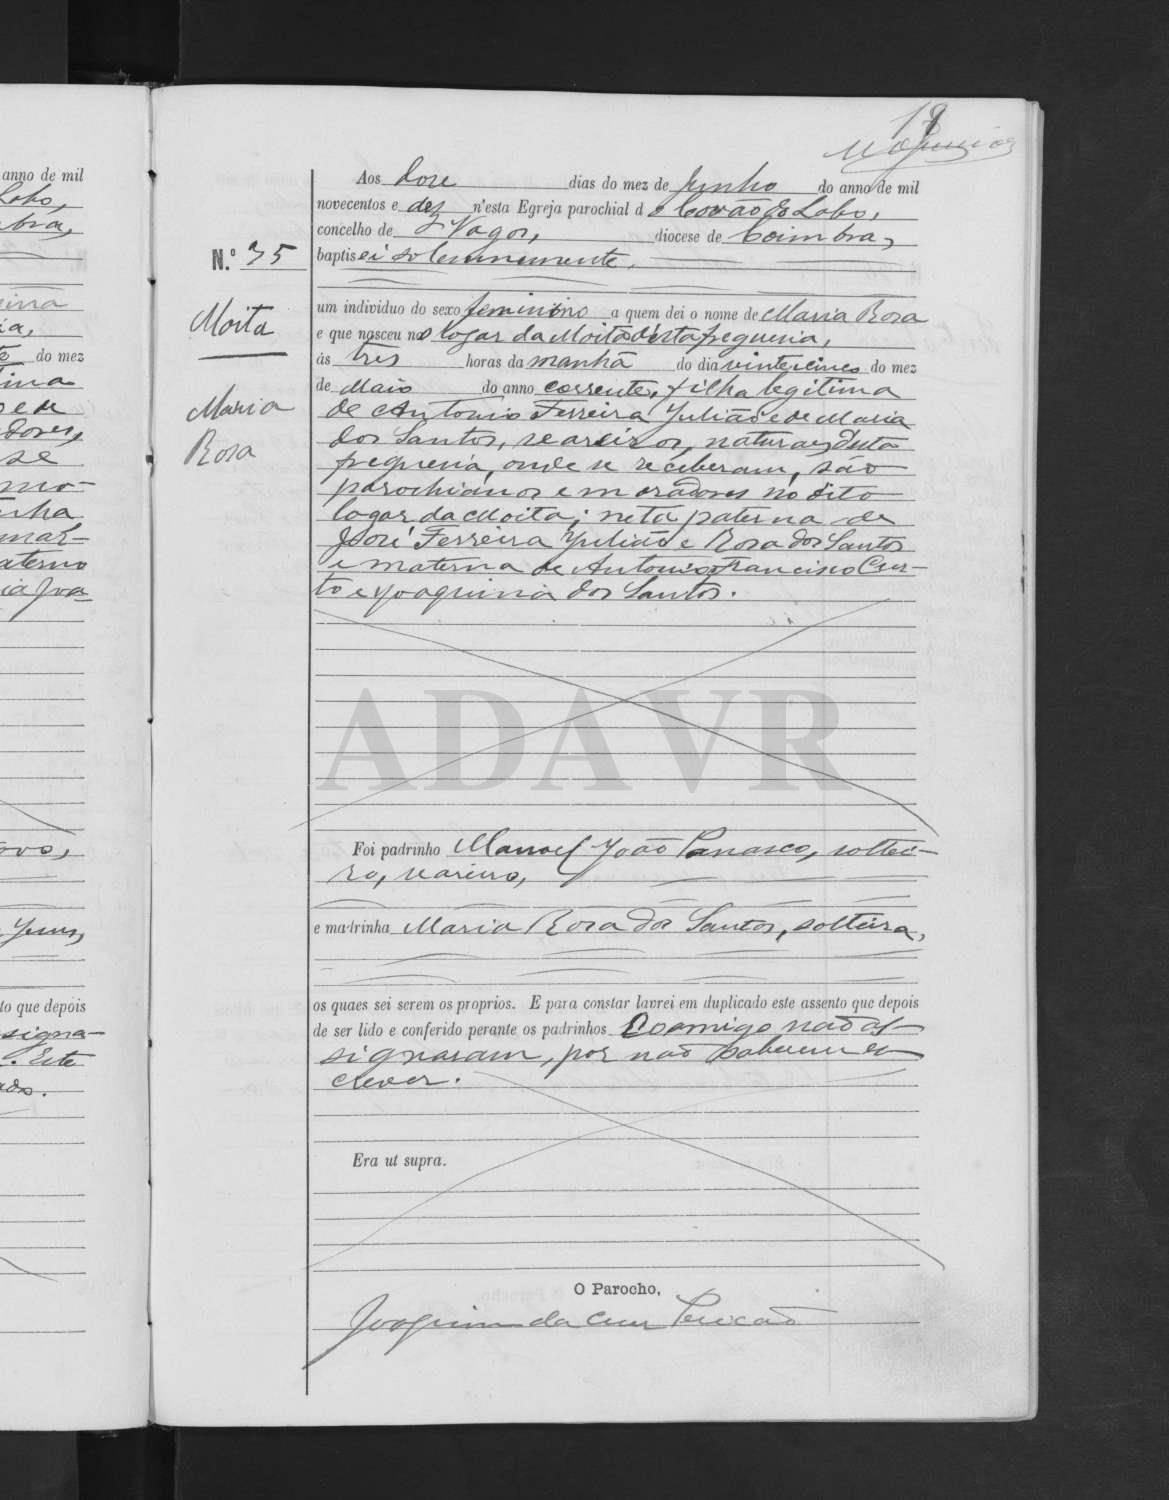 18
anno de mil
Lobo,
bra,
do mez
dores,
se
mo-
inha
mar-
aterno
to que depois
signa-
. Este
Aos doze dias do mez de Junho do anno de mil
novecentos e dez n'esta Egreja parochial do Covão do Lobo,
concelho de Vagos, diocese de Coimbra,
N.º 35
baptisei solemnemente.
um individuo do sexo feminino a quem dei o nome de Maria Rosa
Moita
e que nasceu no logar da Moita d'esta freguesia,
ás tres horas da manhã do dia vinte e cinco do mez
de Maio do anno corrente, filha legitima
Maria
Rosa
de Antonio Ferreira Julião e de Maria
dos Santos, seareiros, naturaes d'esta
freguesia, onde se receberam, são
parochianos e moradores no dito
logar da Moita; neta paterna de
José Ferreira Julião e Rosa dos Santos
e materna de Antonio Francisco Cur-
to e Joaquina dos Santos.
ADAVR
Foi padrinho Manoel João Panasco, soltei-
ro, seareiro,
e madrinha Maria Rosa dos Santos, solteira,
os quaes sei serem os proprios. E para constar lavrei em duplicado este assento que depois
de ser lido e conferido perante os padrinhos Comigo não as-
signaram, por não saberem es-
crever.
Era ut supra.
O Parocho,
Joaquim da Cruz